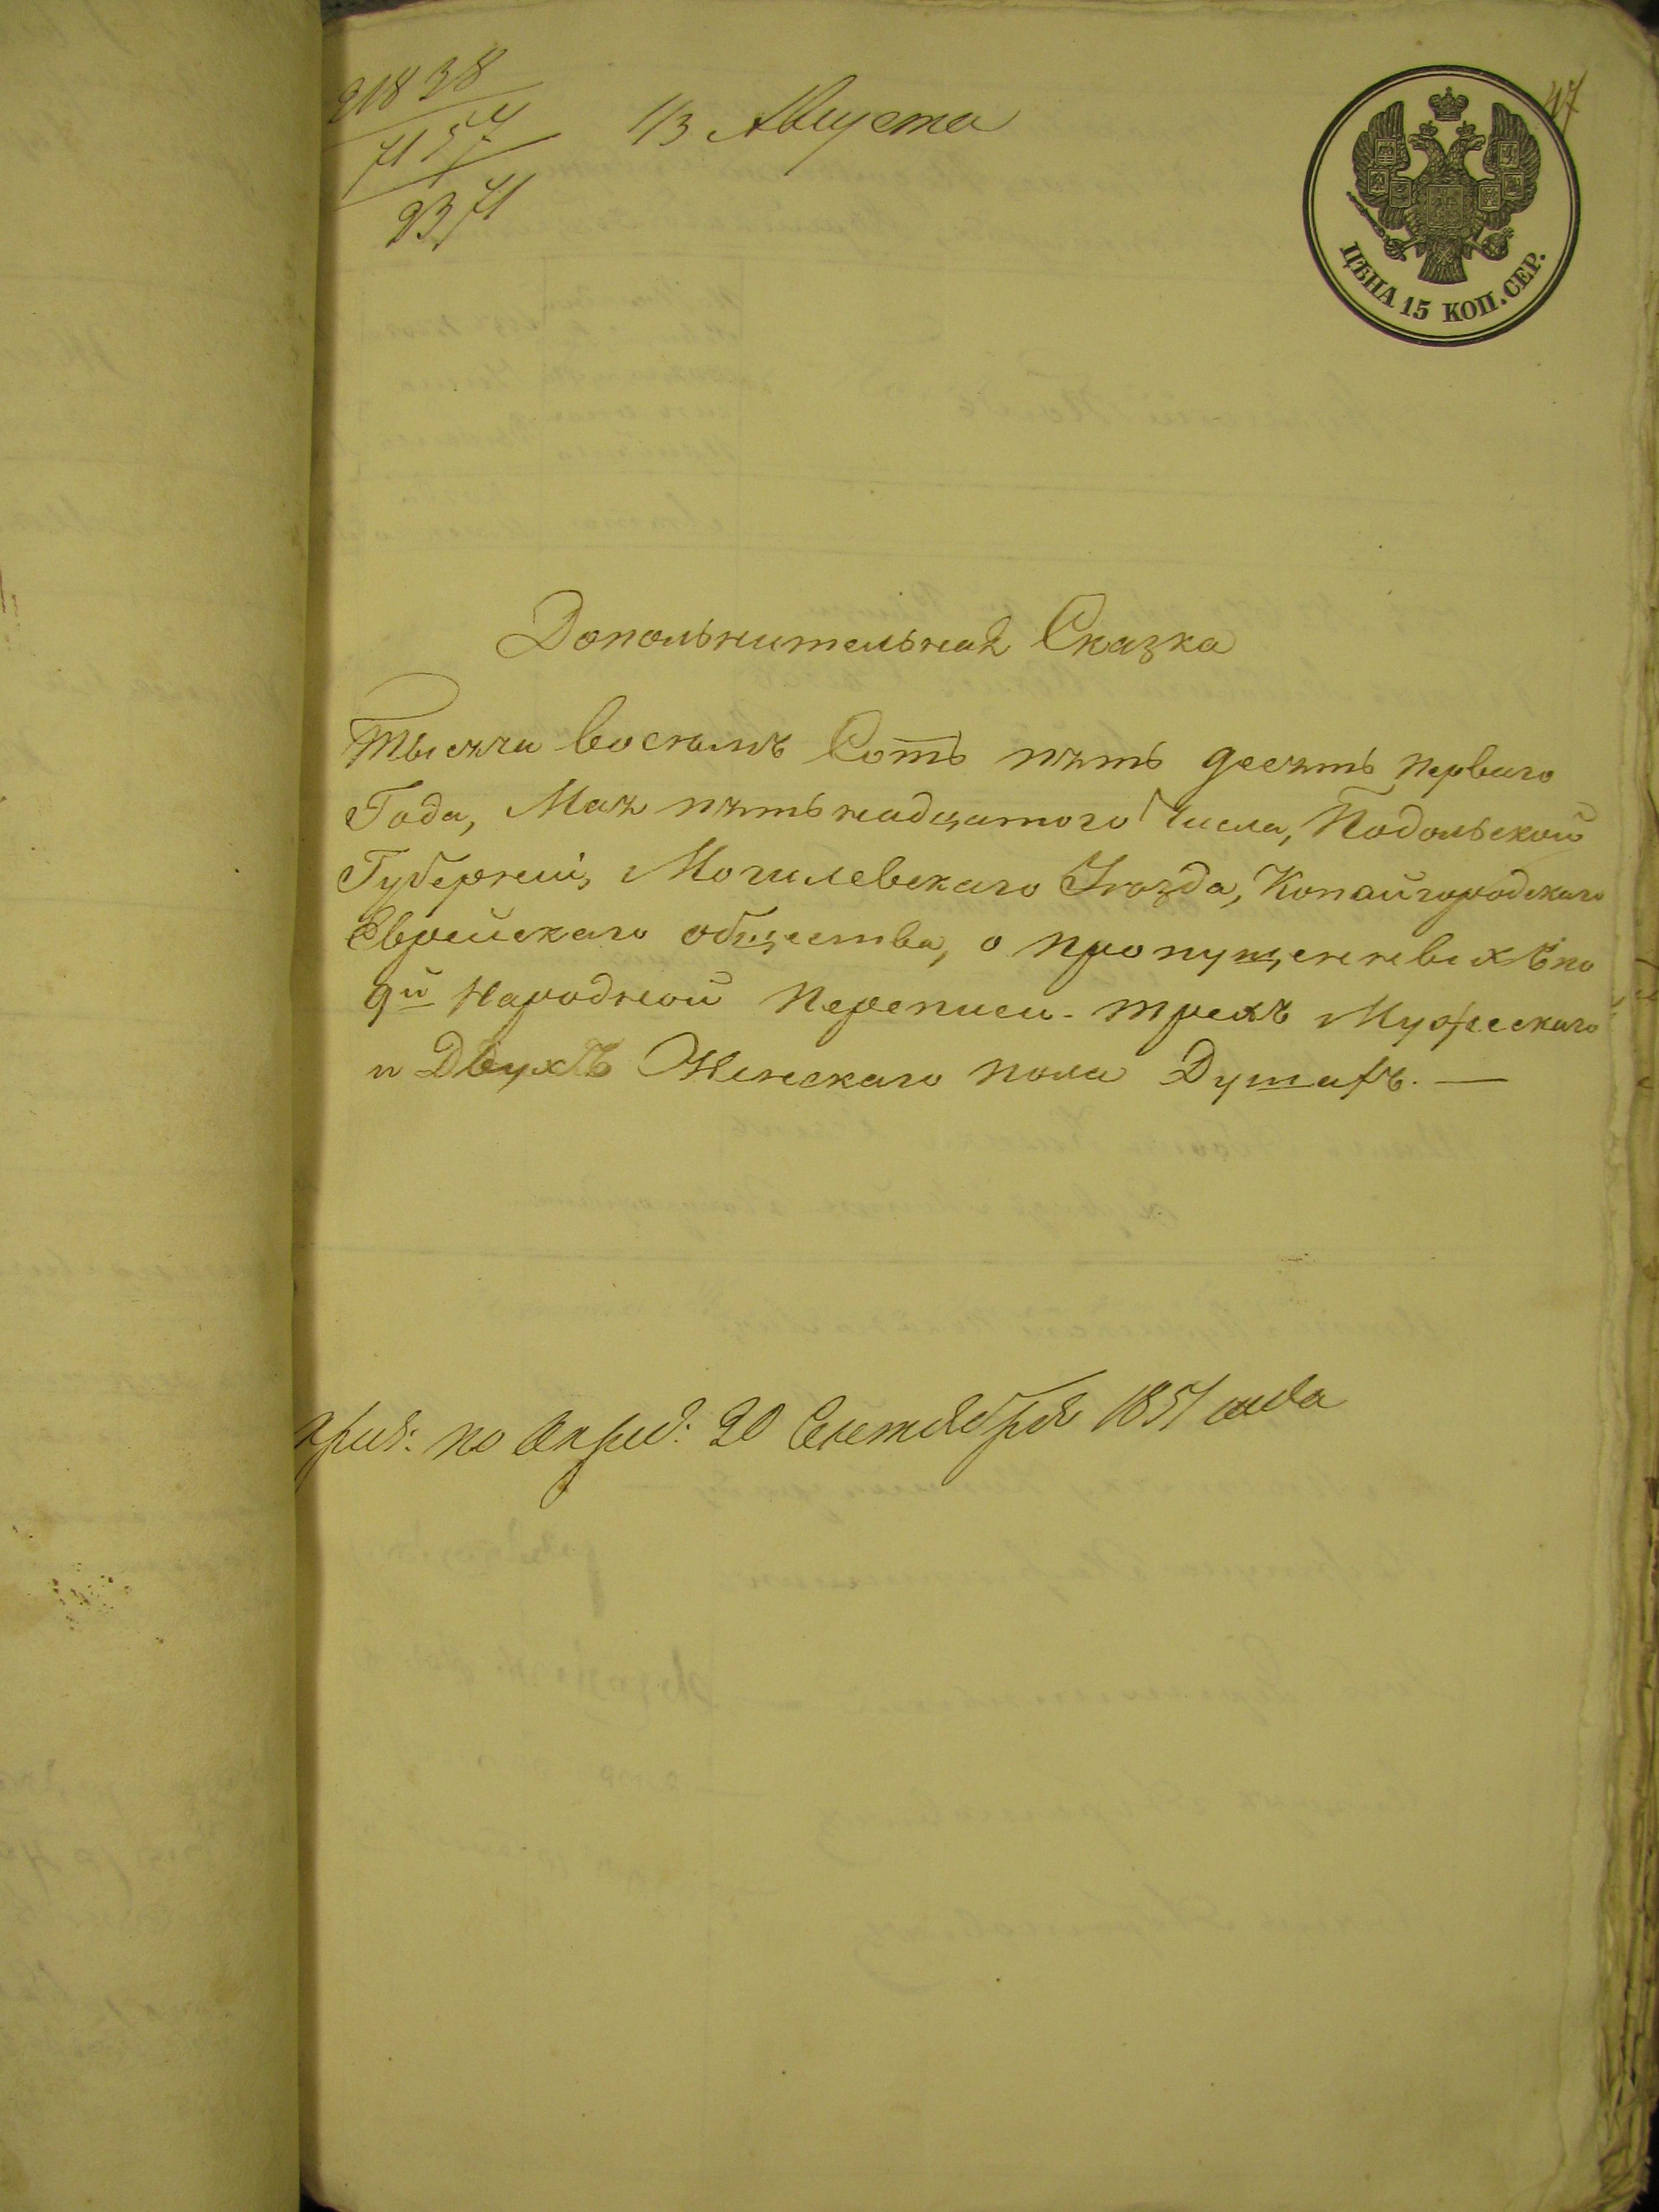 1/3 Августа
47
ЦѢНА 15 КОП. СЕР.
Дополнительная Сказка
Тысяча восемь Сотъ пять десять перваго
Года, Мая пятьнадцатого Числа, Подольской
Губерніи, Могилевскаго Уѣзда, Копайгородскаго
Еврейскаго общества, о пропущенныхъ по
9й Народной Переписи. трехъ Мужескаго
и Двухъ Женскаго пола Душахъ. —
20 Сентября 1851 года